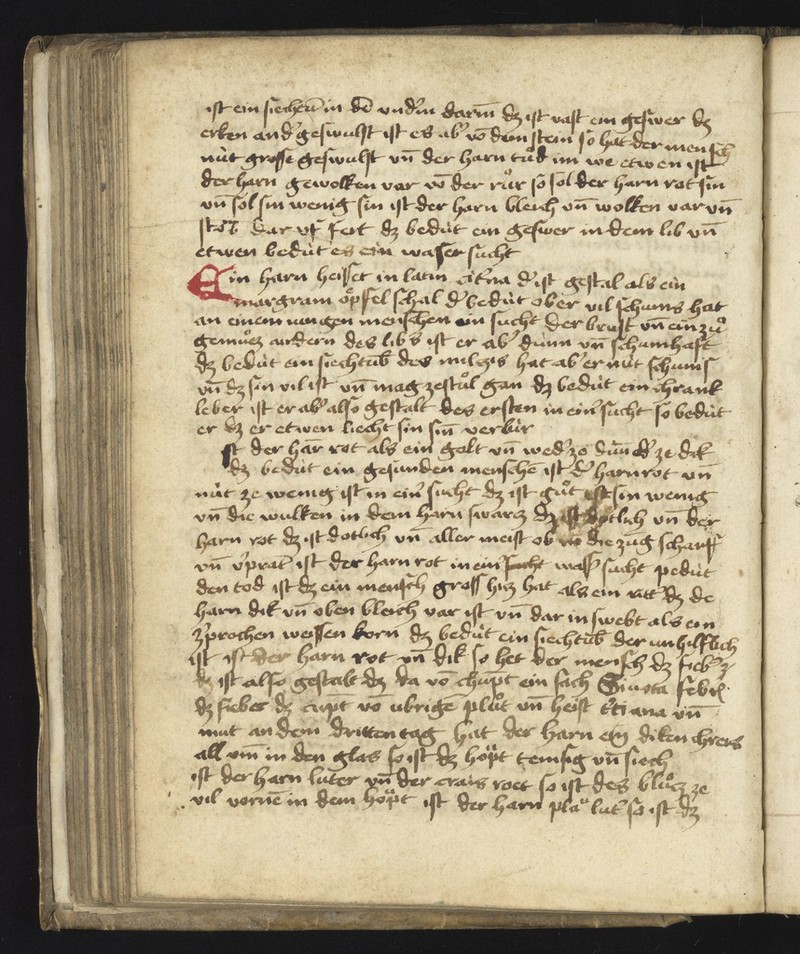 ist ein siechen in dē vnd'm darm dz ist vast ein geswer dz
erken and' geswulst ist es ab' vō dem stein so hat der mensch
nüt grosse geswulst vn̄ der harn tůd im we etwen ist
der harn gewolken var vō der růr so sol der harn rot sin
vn̄ sol sin wenig sin ist der harn bleich vn̄ wolken var vn̄
dar vf fert dz bedüt ein geswer in dem lib vn̄
etwen bedüt es ein wasser sucht
Ein harn heisset in latin d' ist gestal als ein
margram öpfel schal d' bedüt ober vil schums hat
an einem iungen menschen ein sucht der brust vn̄ ein zů
andern des libs ist er ab' dünn vn̄ schumhaft
dz bedüt ein siechtūb des milczis hat ab' er nüt schums
vn̄ dz sin vil ist vn̄ mag ze stůl gan dz bedüt ein chrank
leber ist er ab' also gestalt des ersten in ein' sucht so bedüt
er dz er etwen liecht sin sin̄ verlür
Ist der harn rot als ein golt vn̄ wed' ze dün̄ od' ze dik
dz bedüt ein gesunden mensche ist d' harn rot vn̄
nüt ze wenig ist in ein' sucht dz ist gůt ist sin wenig
vn̄ die wulken in dem harn swarcz dz ist dotlich vn̄ der
harn rot dz ist dotlich vn̄ aller meist ob im die zūg scharff
vn̄ ist der harn rot in ein' sucht was' sucht pedüt
den tod ist dz ein mensch gross hicz hat als ein ritt dz de
harn dik vn̄ oben bleich var ist vn̄ dar in swebt als ein
z'prochen weissen korn dz bedüt ein siechtūb der unhilflich
ist ist der harn rot vn̄ dik so het der mensch dz fieb'
dz ist also gestalt dz da vō chüpt ein sach Sinocha febris
dz fieber dz cupt vō übrigē plůt vn̄ heist t'tiana vn̄
mut an dem dritten tag hat der harn ein diken chreis
all vm̄ in den glas so ist dz höpt temsig vn̄ siech
ist der harn luter vn̄ der crais roet so ist des blůcz ze
vil vornē in dem höpt ist der harn pla lut' so ist dz